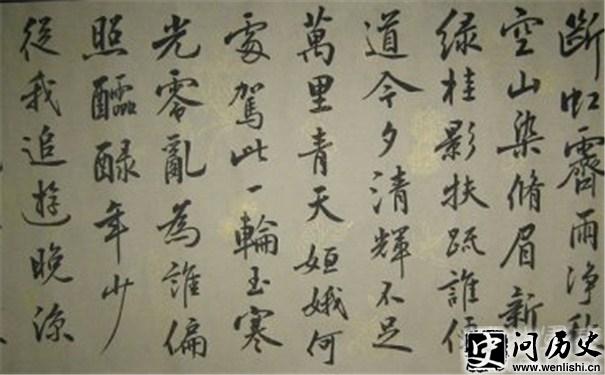 斷虹霽雨净秋
空山染脩眉新
緑桂影扶疏誰便
道今夕清輝不足
萬里青天姮娥何
處駕此一輪玉寒
光零亂為誰偏
照醽醁年少
從我追遊晚涼
问历史
www.wenlishi.cn